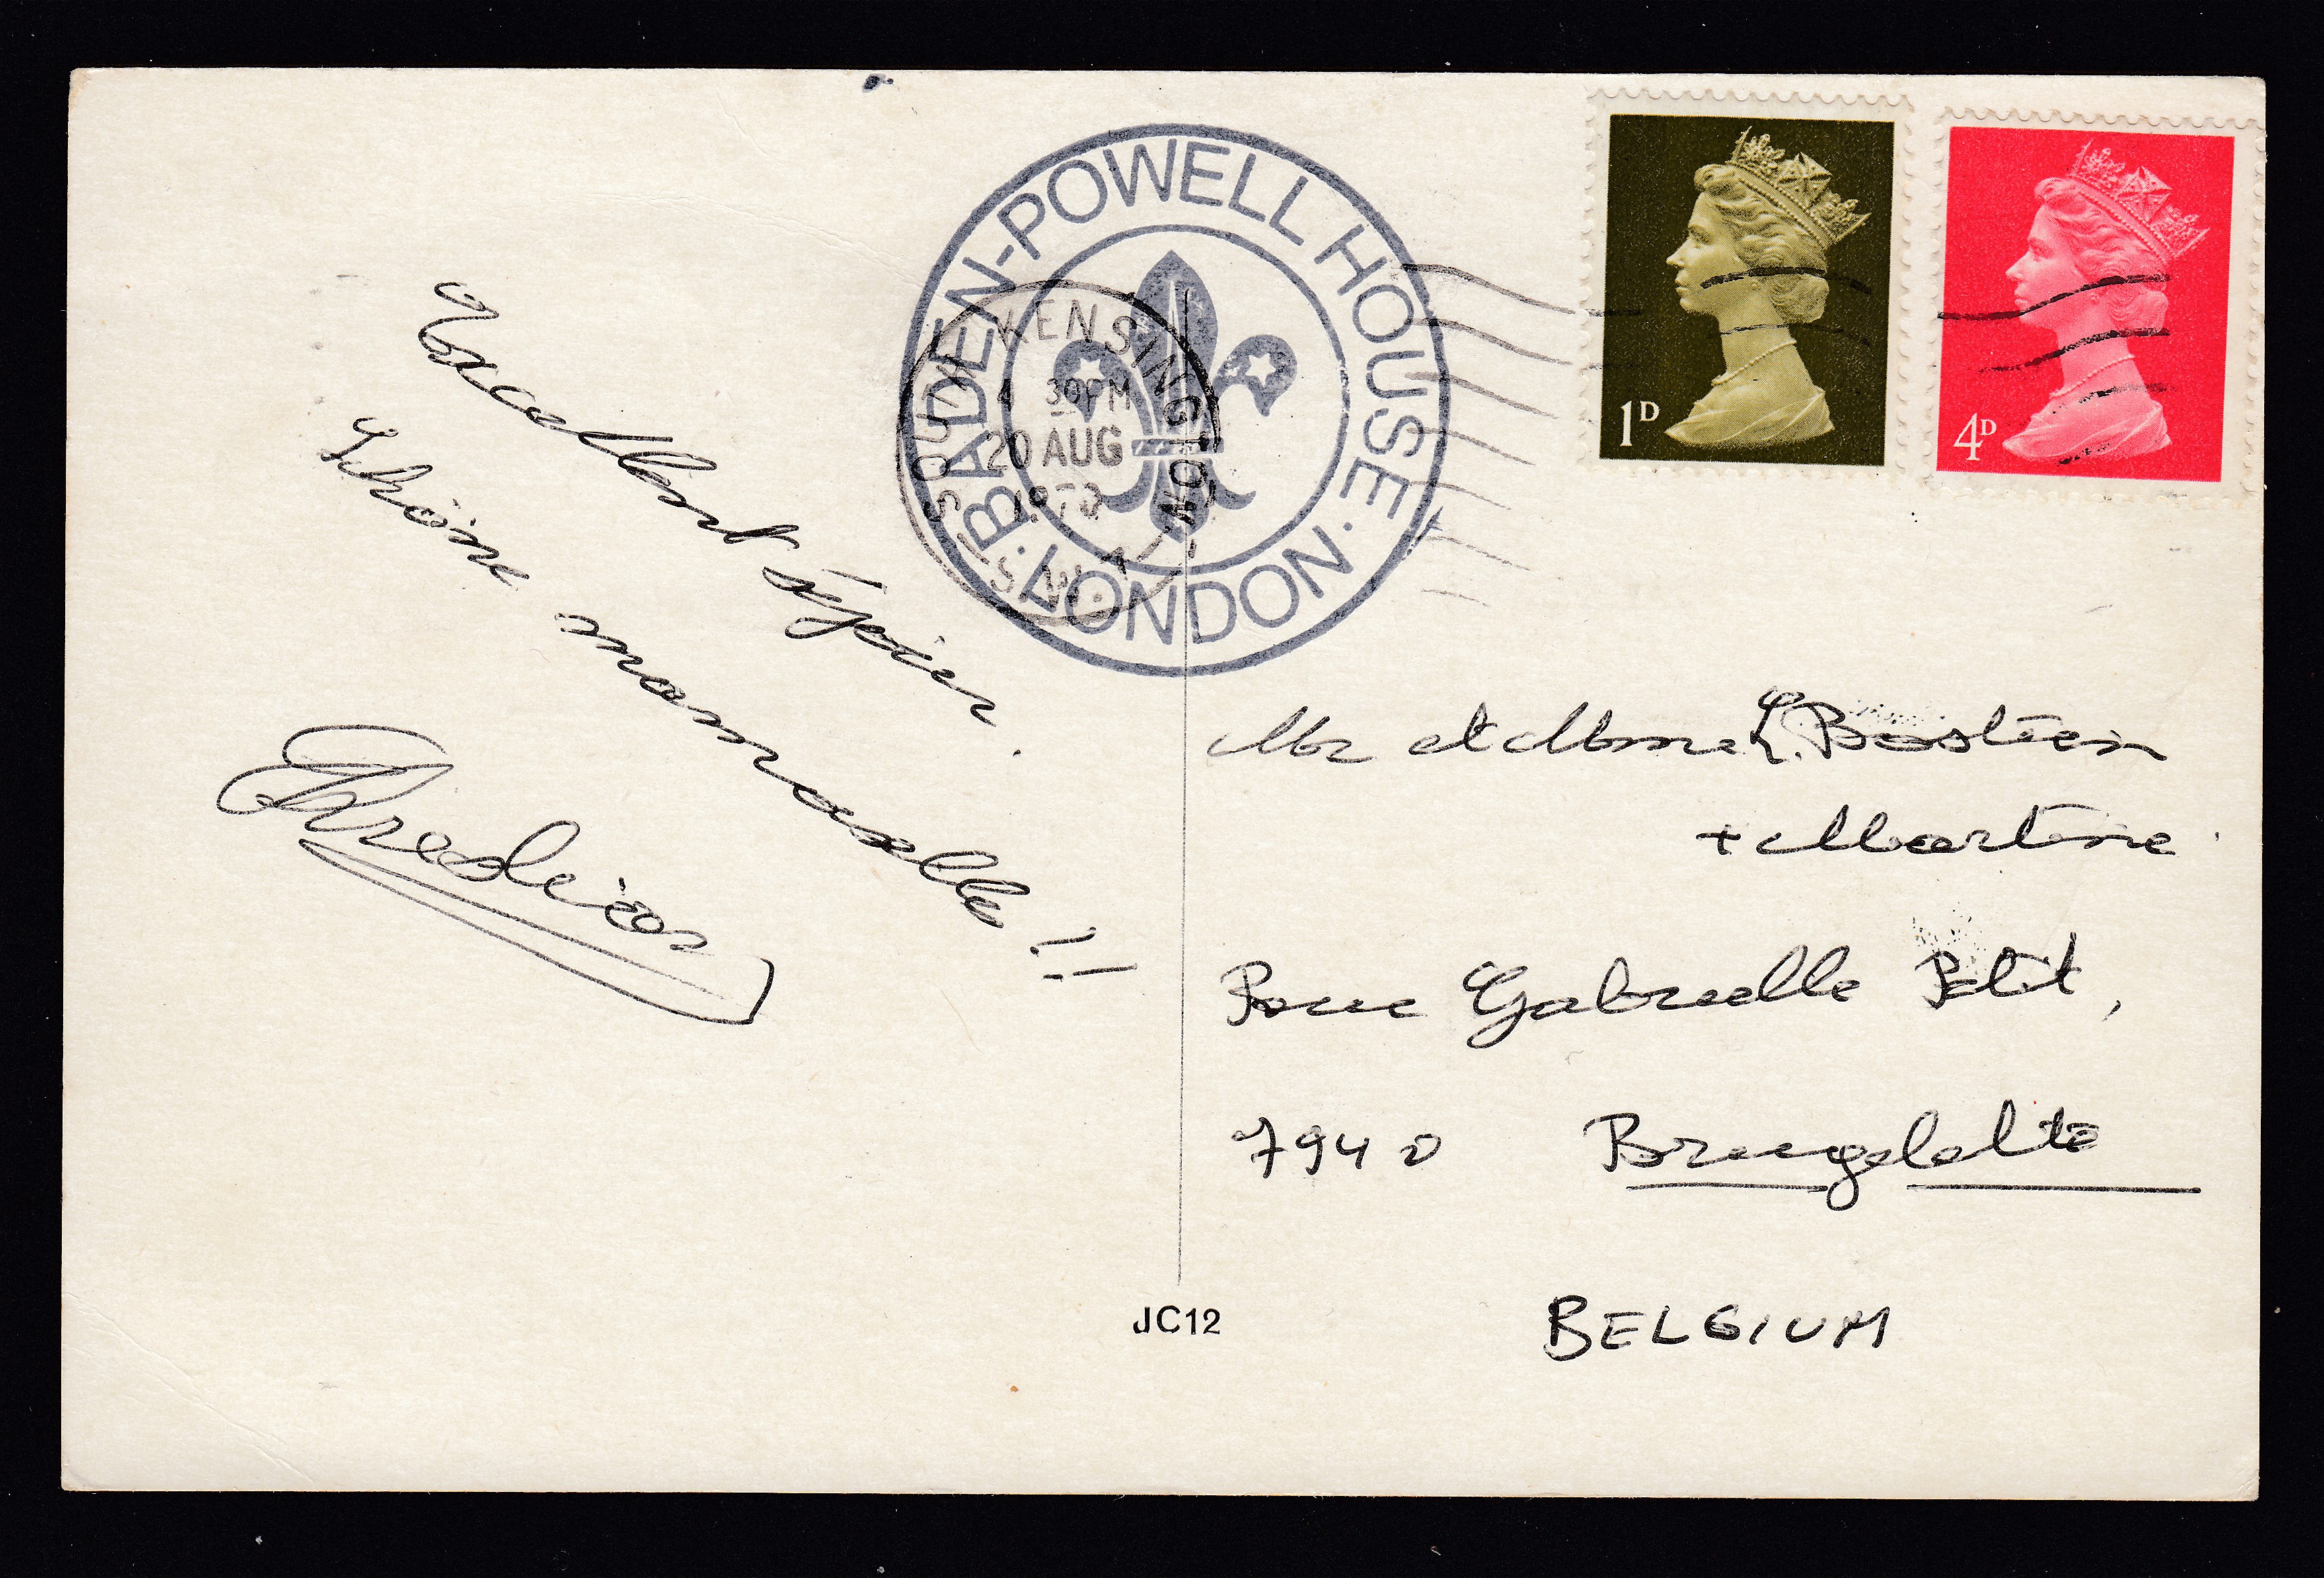 BADEN-POWELL HOUSE
· LONDON ·
SOUTH KENSINGTON
4 30PM
20 AUG
1970
S.W.7
1D
4D
Excellent séjour.
Schöne
Mr et Mme L. Bastien
+ Martine
Rue Gabrielle Petit,
7940 Brugelette
BELGIUM
JC12